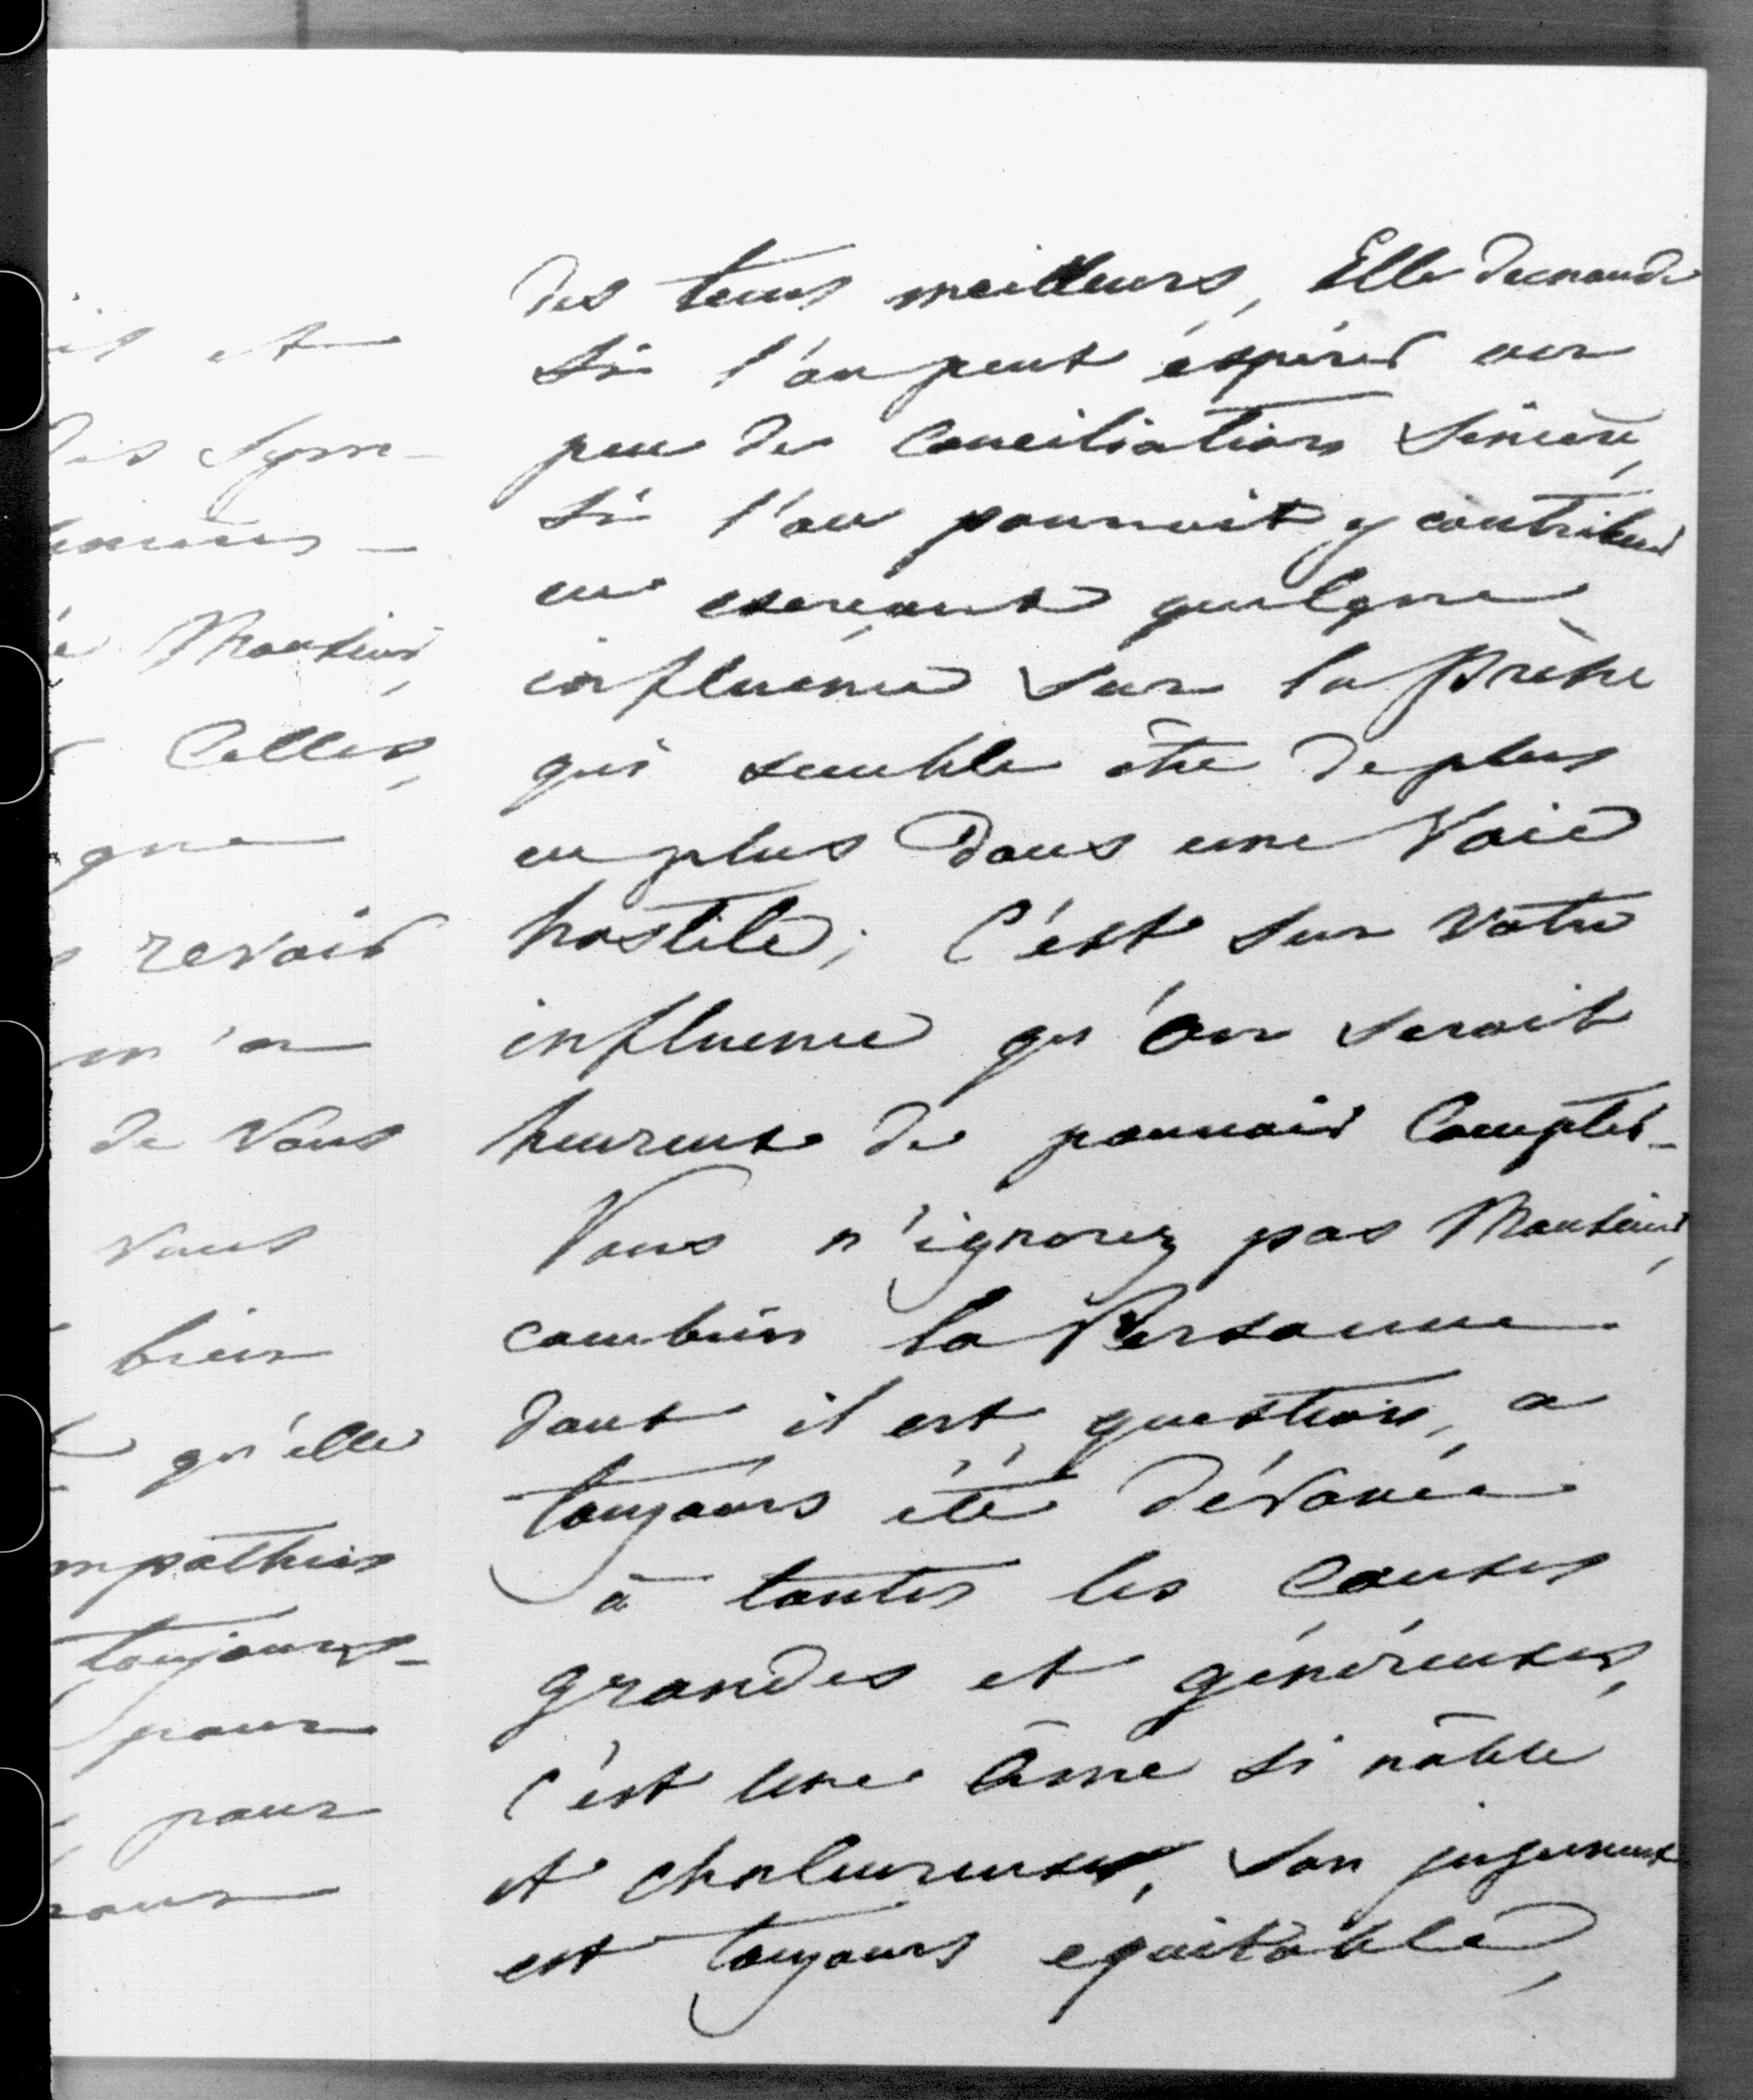 il et
des Sym-
Monsieur,
Celles,
que
revoir
m'a
de Vous
Vous
bien
qu'elle
mpathies
toujours-
pour
pour
des tems meilleurs, Elle demande
Si l'on peut éspérer un
peu de Conciliation Sincère,
Si l'on pourrait y contribuer
en exerçant quelque
influence Sur la Prèsse
qui semble être de plus
en plus Dans une Voie
hostile; C'est Sur Votre
influence qu'On Serait
heureuse de pouvoir Compter-
Vous n'ignorez pas Monsieur,
combien la Personne
dont il est question, a
toujours été dévouée
à toutes les Causes
grandes et généreuses,
C'est Une Âme Si nôble
et chaleureuse, Son jugement
est toujours equitable,